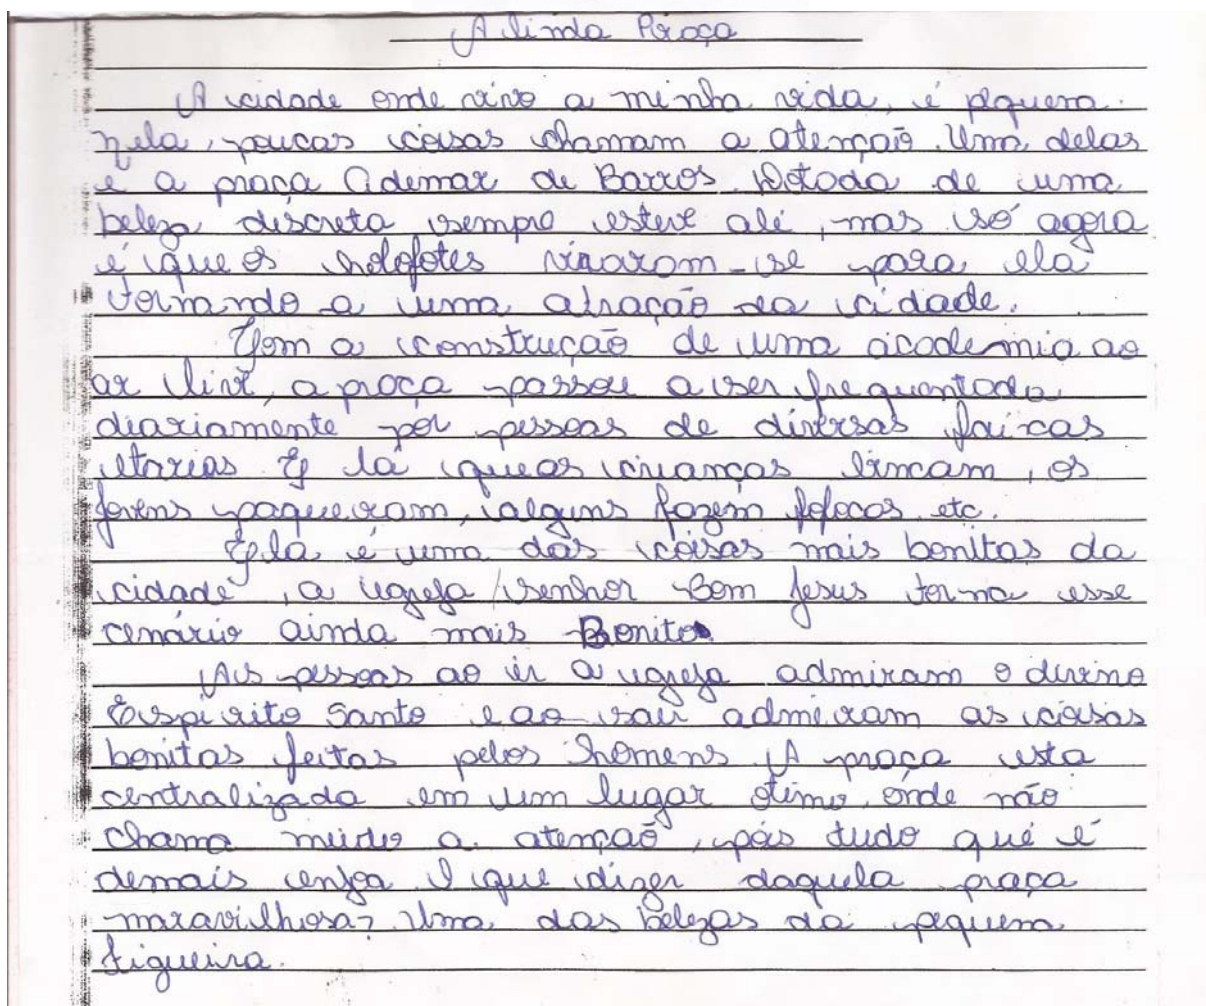 A linda Praça
A cidade onde vivo a minha vida, é pequena.
nela, poucas coisas chamam a atenção. Uma delas
é a praça Ademar de Barros. Dotada de uma
beleza discreta sempre esteve ali, mas só agora
é que os holofotes viraram-se para ela
tornando a uma atração da cidade.
Com a construção de uma academia ao
ar livre, a praça passou a ser frequentada
diariamente por pessoas de diversas faixas
etarias É lá que as crianças brincam, os
jovens paqueiram, alguns fazem fofocas etc.
Ela é uma das coisas mais bonitas da
cidade, a igreja senhor Bom Jesus torna esse
cenário ainda mais Bonito
As pessoas ao ir a igreja admiram o divino
Espirito Santo e ao sair admiram as coisas
bonitas feitas pelos homens A praça esta
centralizada em um lugar ótimo, onde não
chama muito a atenção, pois tudo que é
demais enjoa O que dizer daquela praça
maravilhosa? Uma das belezas da pequena
Figueira.